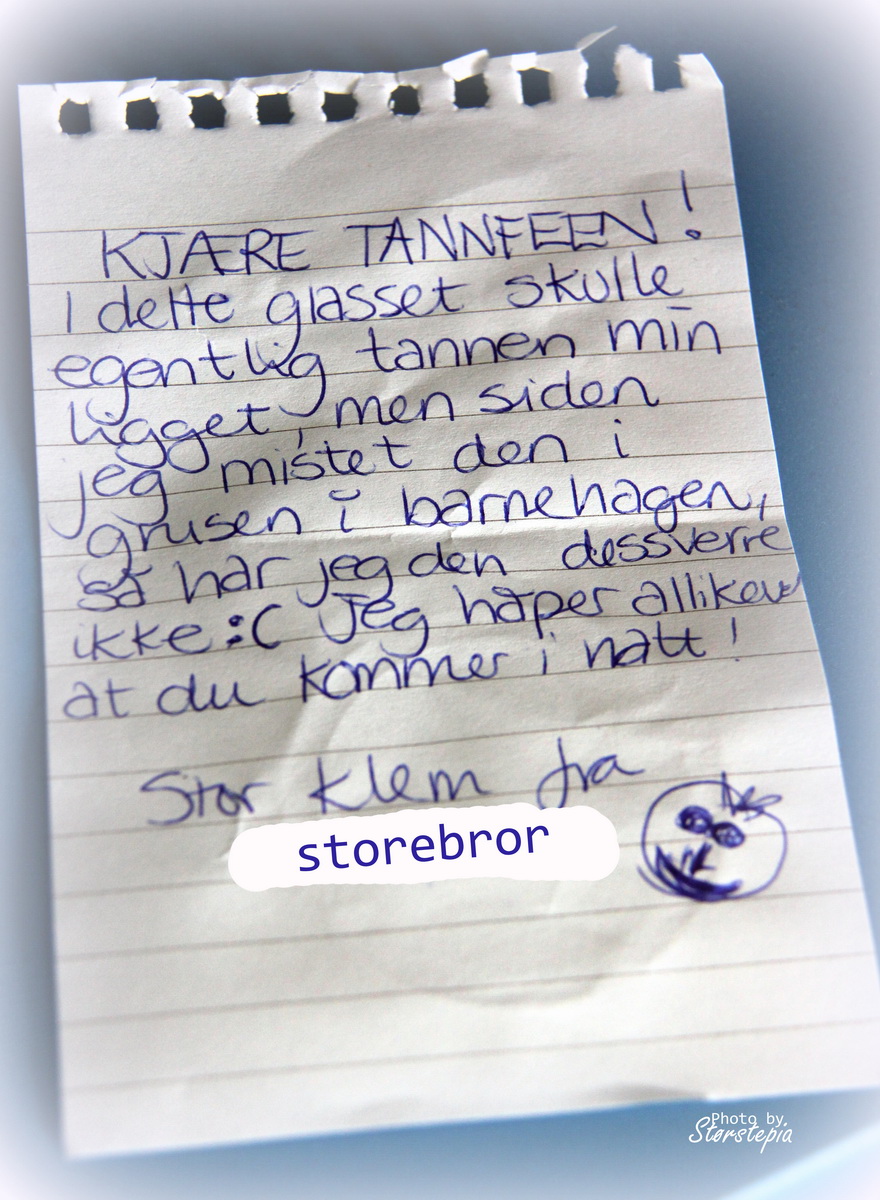 KJÆRE TANNFEEN!
I dette glasset skulle
egentlig tannen min
ligget, men siden
jeg mistet den i
grusen i barnehagen,
så har jeg den dessverre
ikke :C Jeg håper allikevel
at du kommer i natt!
Stor klem fra
storebror
Photo by
Størstepia